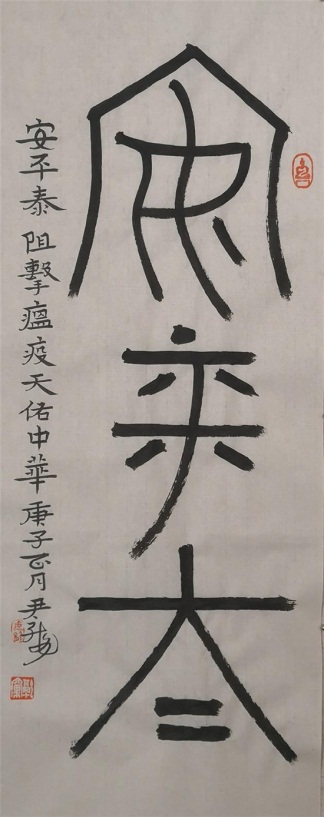 安平泰
安平泰 阻擊瘟疫天佑中華 庚子正月尹